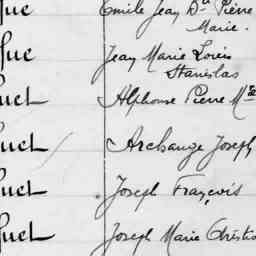 fue Emile Jean Bte Pierre
Marie.
fue Jean Marie Louis
Stanislas
fuel Alphonse Pierre Mie
fuel Archange Joseph
fuel Joseph François
fuel Joseph Marie Christ